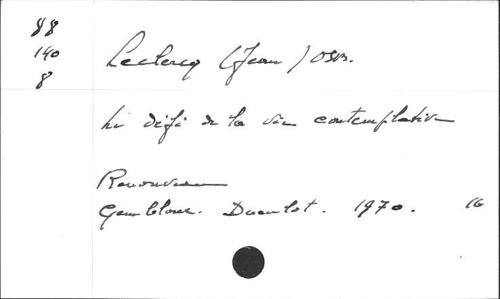 88
140
8
Leclercq (Jean) OSB.
Le défi de la vie contemplative
Renouveau
Gembloux. Duculot. 1970. 16